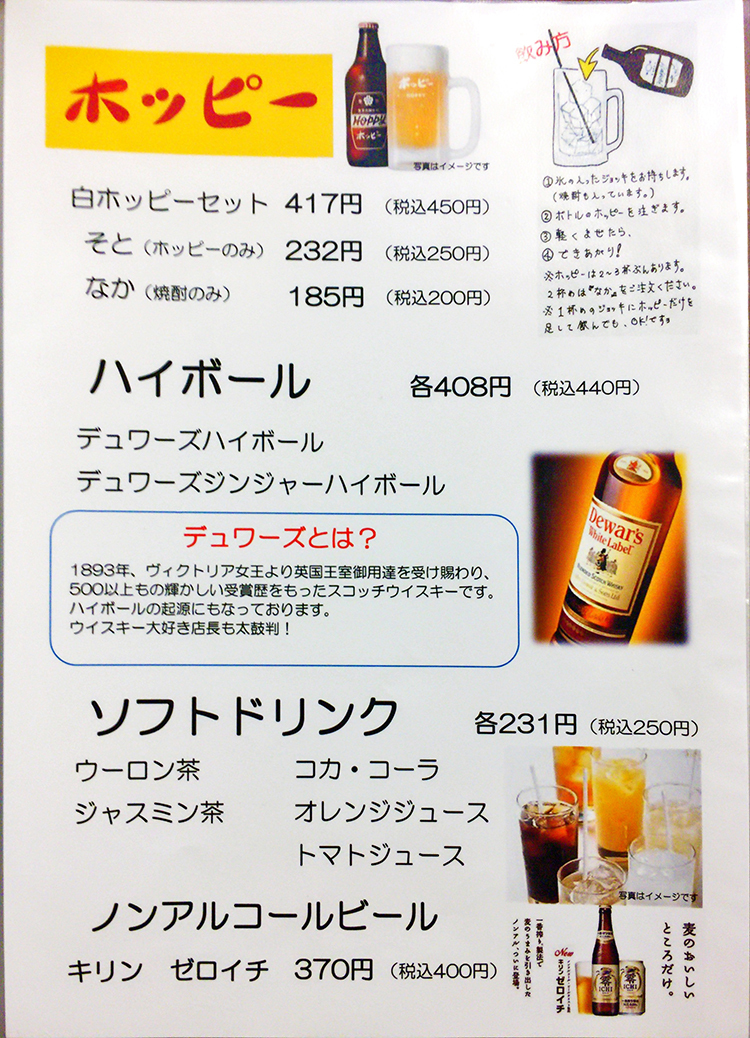 ホッピー
HOPPY
ホッピー
ホッピー
写真はイメージです
飲み方
①氷の入ったジョッキをお持ちします。
(焼酎も入っています。)
②ボトルのホッピーを注ぎます。
③軽くまぜたら、
④できあがり!
※ホッピーは2~3杯ぶんあります。
2杯めは『なか』をご注文ください。
※1杯めのジョッキにホッピーだけを
足して飲んでも、OK!です
白ホッピーセット 417円 (税込450円)
そと(ホッピーのみ) 232円 (税込250円)
なか(焼酎のみ) 185円 (税込200円)
ハイボール 各408円 (税込440円)
デュワーズハイボール
デュワーズジンジャーハイボール
デュワーズとは?
1893年、ヴィクトリア女王より英国王室御用達を受け賜わり、
500以上もの輝かしい受賞歴をもったスコッチウイスキーです。
ハイボールの起源にもなっております。
ウイスキー大好き店長も太鼓判!
Dewar's
White Label
ソフトドリンク 各231円 (税込250円)
ウーロン茶 コカ・コーラ
ジャスミン茶 オレンジジュース
トマトジュース
写真はイメージです
ノンアルコールビール
キリン ゼロイチ 370円 (税込400円)
麦のおいしい
ところだけ。
一番搾り製法で
麦のうまみを引き出した
ノンアル、ついに登場。
New
キリンゼロイチ
ICHI
ICHI